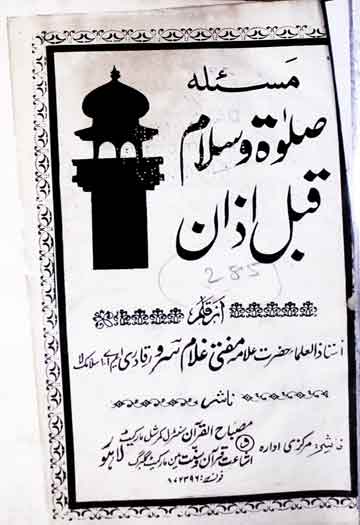 مسئله
صلوٰۃ و سلام
قبل اذان
285
از قلم
استاذ العلماء حضرت علامہ مفتی غلام سرور قادری ایم اے اسلامک لاء
ناشر
مصباح القرآن سنٹرل کمرشل مارکیٹ
ناشر: مرکزی ادارہ
اشاعت قرآن و سنت مین مارکیٹ گلبرگ
لاہور
فون: ۸۷۲۳۹۶